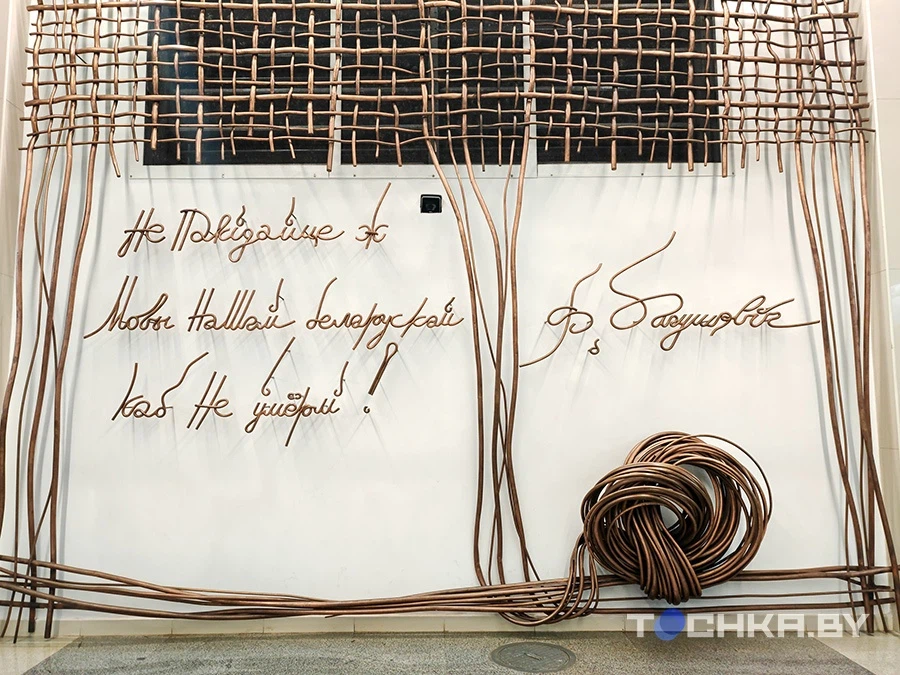 Не Пакідайце ж
Мовы Нашай беларускай
каб Не ўмёрлі!
Ф. Багушэвіч
TOCHKA.BY